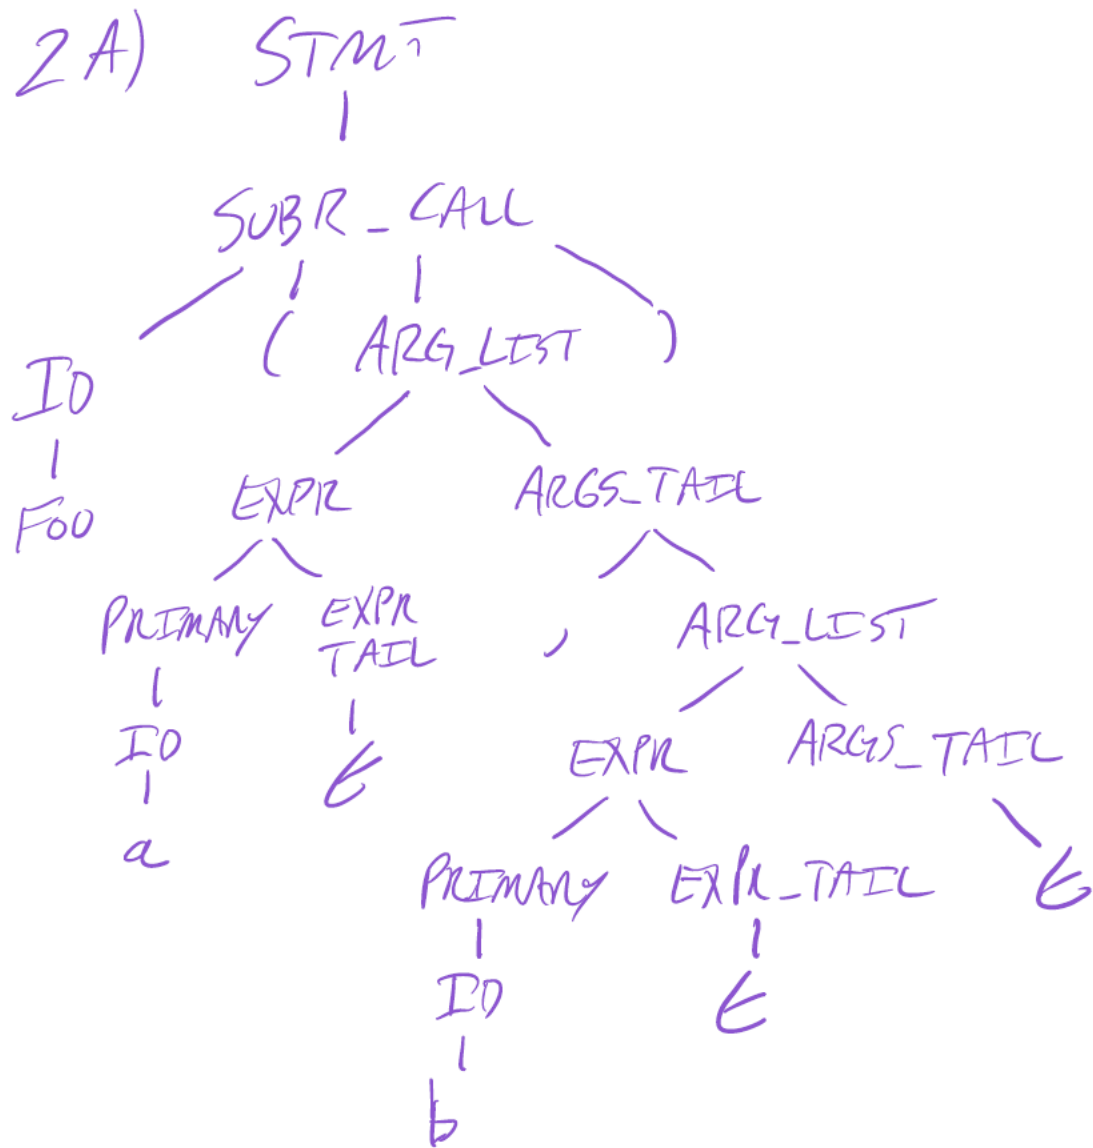 2A) STMT
SUBR_CALL
( ARG_LIST )
ID
FOO
EXPR ARGS_TAIL
PRIMARY EXPR
TAIL , ARG_LIST
ID ε EXPR ARGS_TAIL
a
PRIMARY EXPR_TAIL ε
ID ε
b